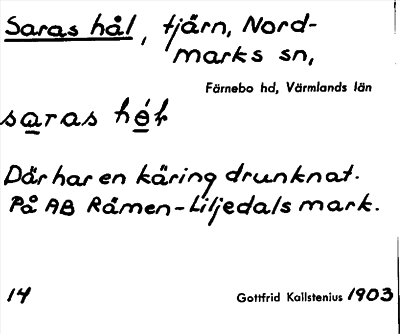 Saras hål, tjärn, Nord-
marks sn,
Färnebo hd, Värmlands län
saras
Där har en käring drunknat.
På AB Rämen-Liljedals mark.
14 Gottfrid Kallstenius 1903